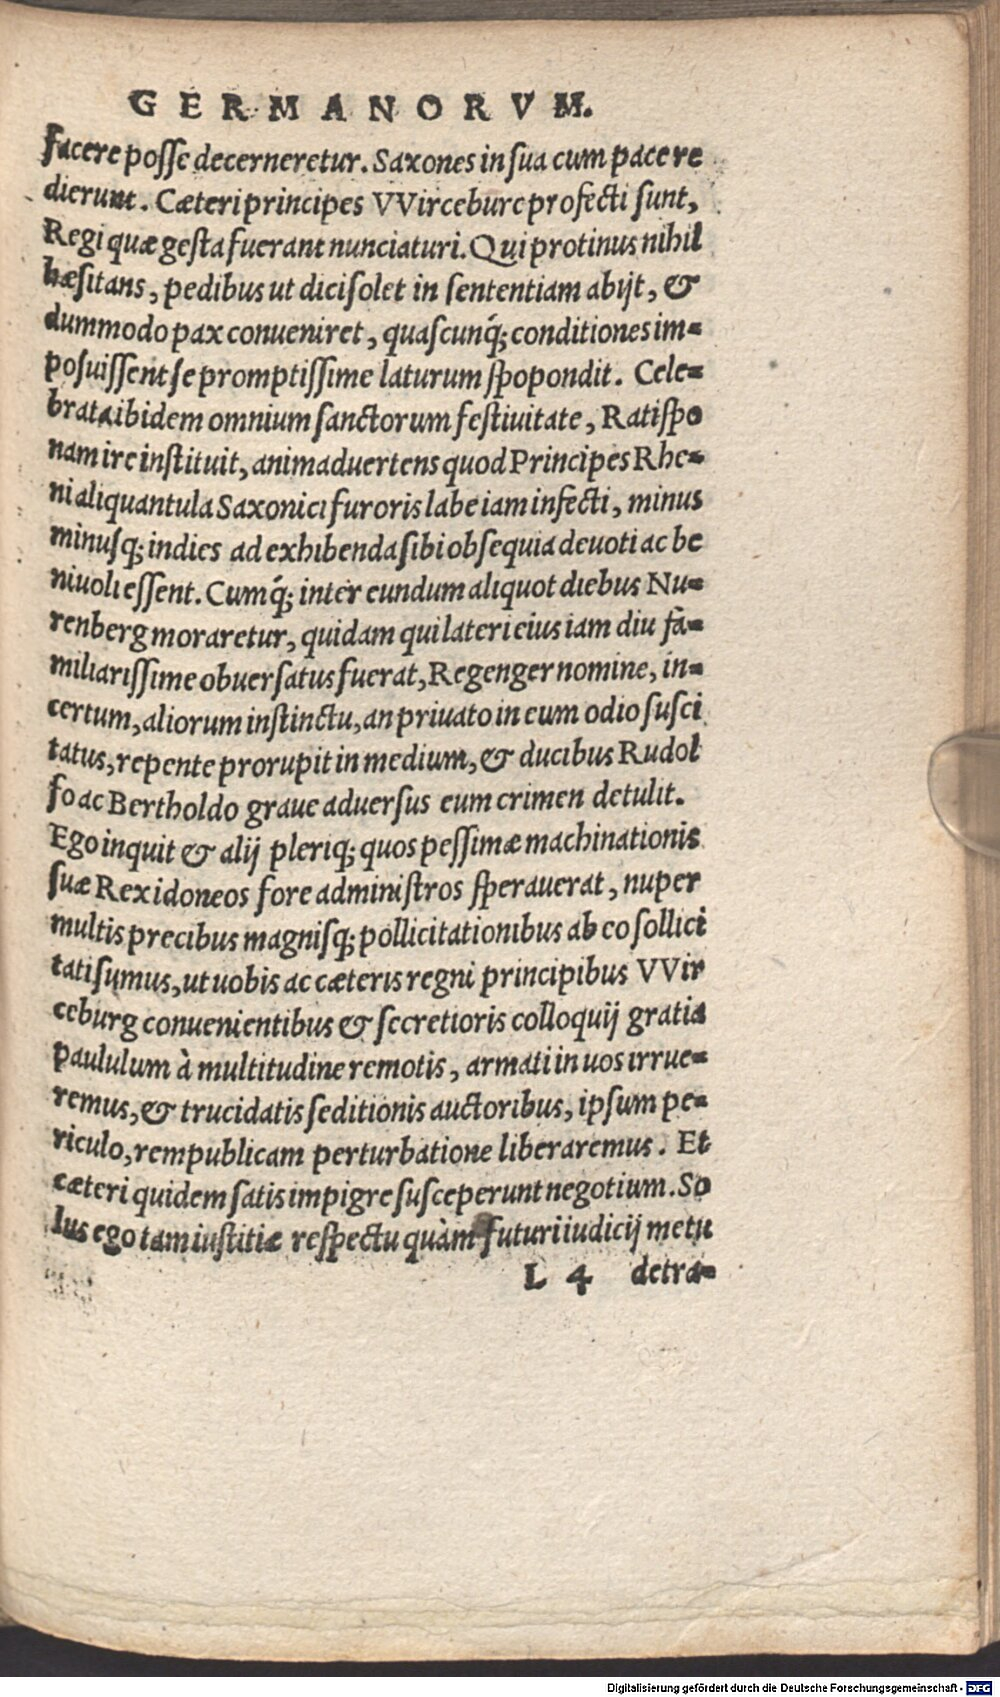 GERMANORVM.
facere posse decerneretur. Saxones in sua cum pace re
dierunt. Cæteri principes VVirceburc profecti sunt,
Regi quæ gesta fuerant nunciaturi. Qui protinus nihil
hæsitans, pedibus ut dici solet in sententiam abijt, &
dummodo pax conueniret, quascunq́; conditiones im-
posuissent se promptissime laturum spopondit. Cele-
brata ibidem omnium sanctorum festiuitate, Ratispo
nam ire instituit, animaduertens quod Principes Rhe-
ni aliquantula Saxonici furoris labe iam infecti, minus
minusq; indies ad exhibenda sibi obsequia deuoti ac be
niuoli essent. Cumq́; inter eundum aliquot diebus Nu-
renberg moraretur, quidam qui lateri eius iam diu fa-
miliarissime obuersatus fuerat, Regenger nomine, in-
certum, aliorum instinctu, an priuato in eum odio susci
tatus, repente prorupit in medium, & ducibus Rudol
fo ac Bertholdo graue aduersus eum crimen detulit.
Ego inquit & alij pleriq; quos pessimæ machinationis
suæ Rex idoneos fore administros sperauerat, nuper
multis precibus magnisq; pollicitationibus ab eo sollici
tati sumus, ut uobis ac cæteris regni principibus VVir
ceburg conuenientibus & secretioris colloquij gratia
paululum à multitudine remotis, armati in uos irrue-
remus, & trucidatis seditionis auctoribus, ipsum pe-
riculo, rempublicam perturbatione liberaremus. Et
cæteri quidem satis impigre susceperunt negotium. So
lus ego tam iustitiæ respectu quàm futuri iudicij metu
L 4 detra-
Digitalisierung gefördert durch die Deutsche Forschungsgemeinschaft - DFG